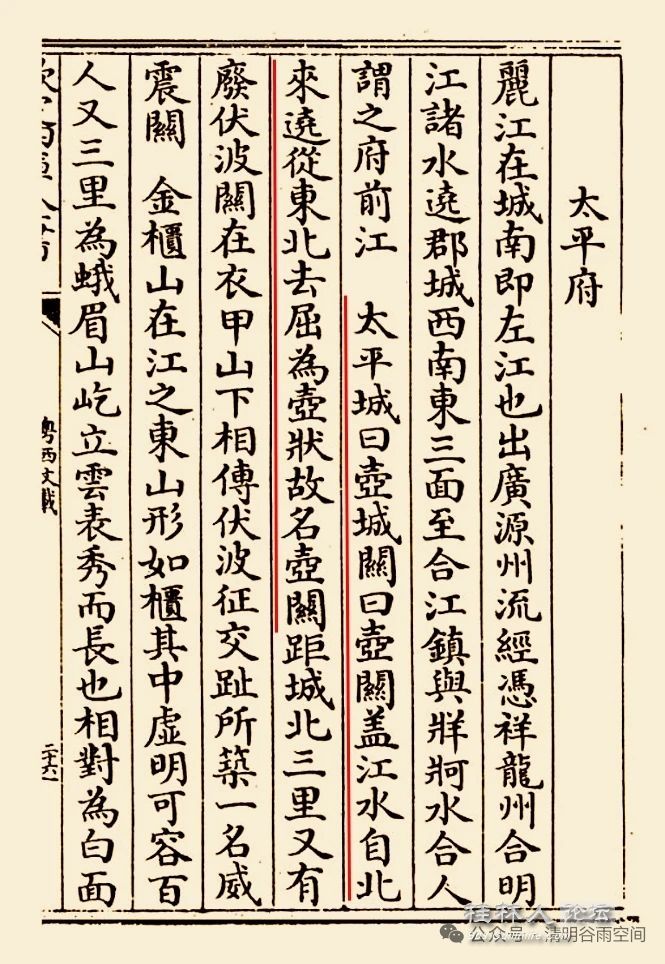 太平府
麗江在城南即左江也出廣源州流經憑祥龍州合明
江諸水遶郡城西南東三面至合江鎮與牂牁水合人
謂之府前江　太平城曰壺城關曰壺關盖江水自北
來遶從東北去屈為壺狀故名壺關距城北三里又有
廢伏波關在衣甲山下相傳伏波征交趾所築一名威
震關　金櫃山在江之東山形如櫃其中虛明可容百
人又三里為蛾眉山屹立雲表秀而長也相對為白面
粵西文載
二十六
桂林人论坛
公众号 · 清明谷雨空间